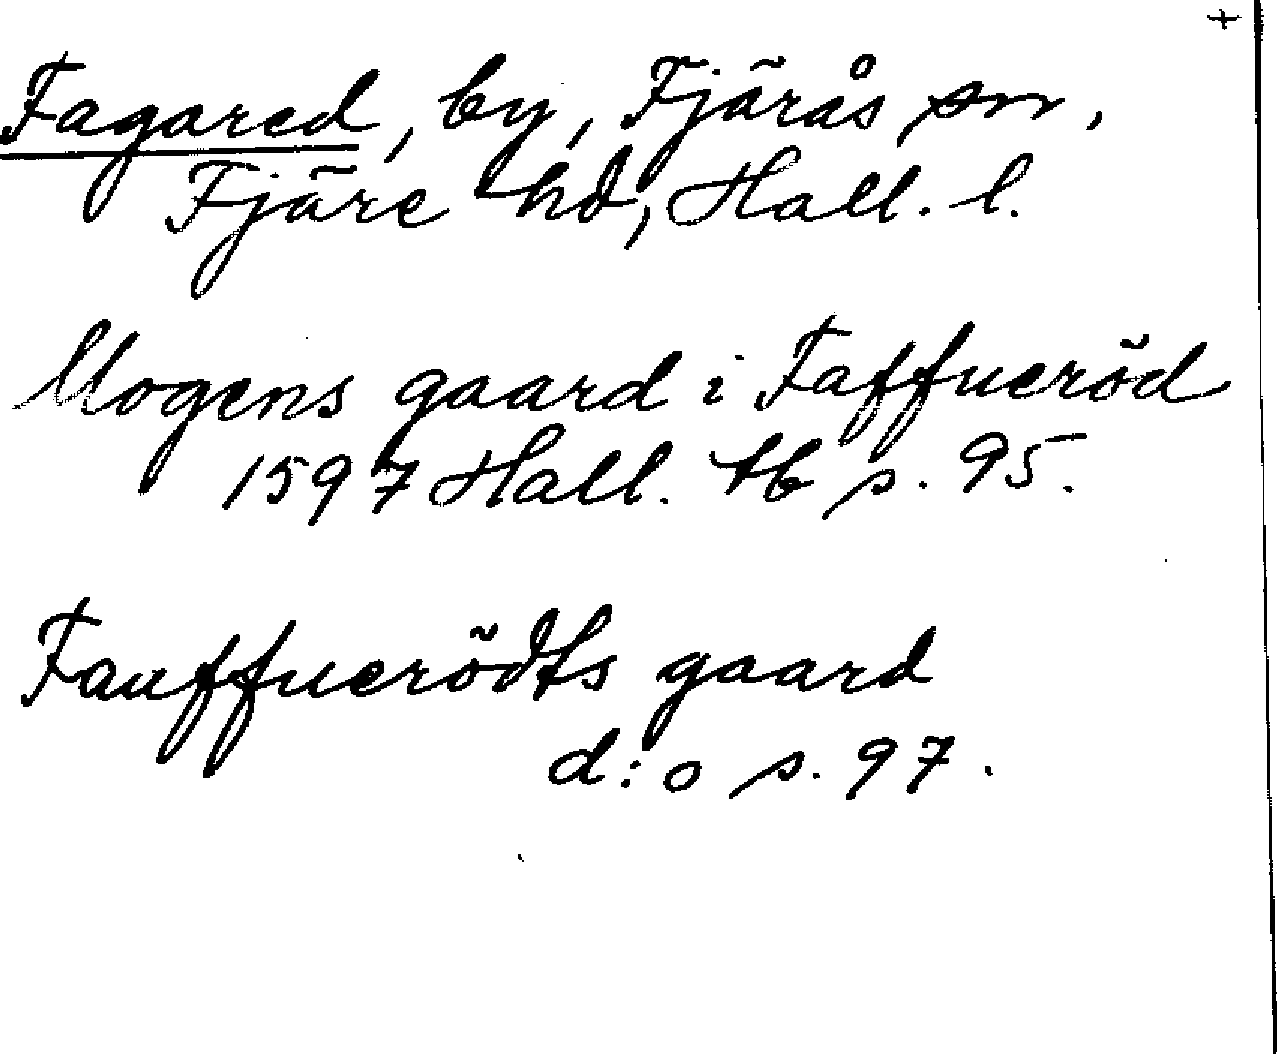 +
Fagared, by, Fjärås sn,
Fjäre hd, Hall. l.
Mogens gaard i Faffueröd
1597 Hall. tb s. 95.
Fauffuerödts gaard
d:o s. 97.